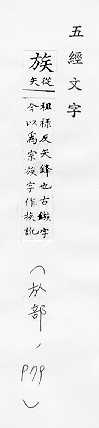 五經文字
族
從
矢
祖祿反矢鋒也古鏃字
今以爲宗族字作族訛
(㫃部, P79)